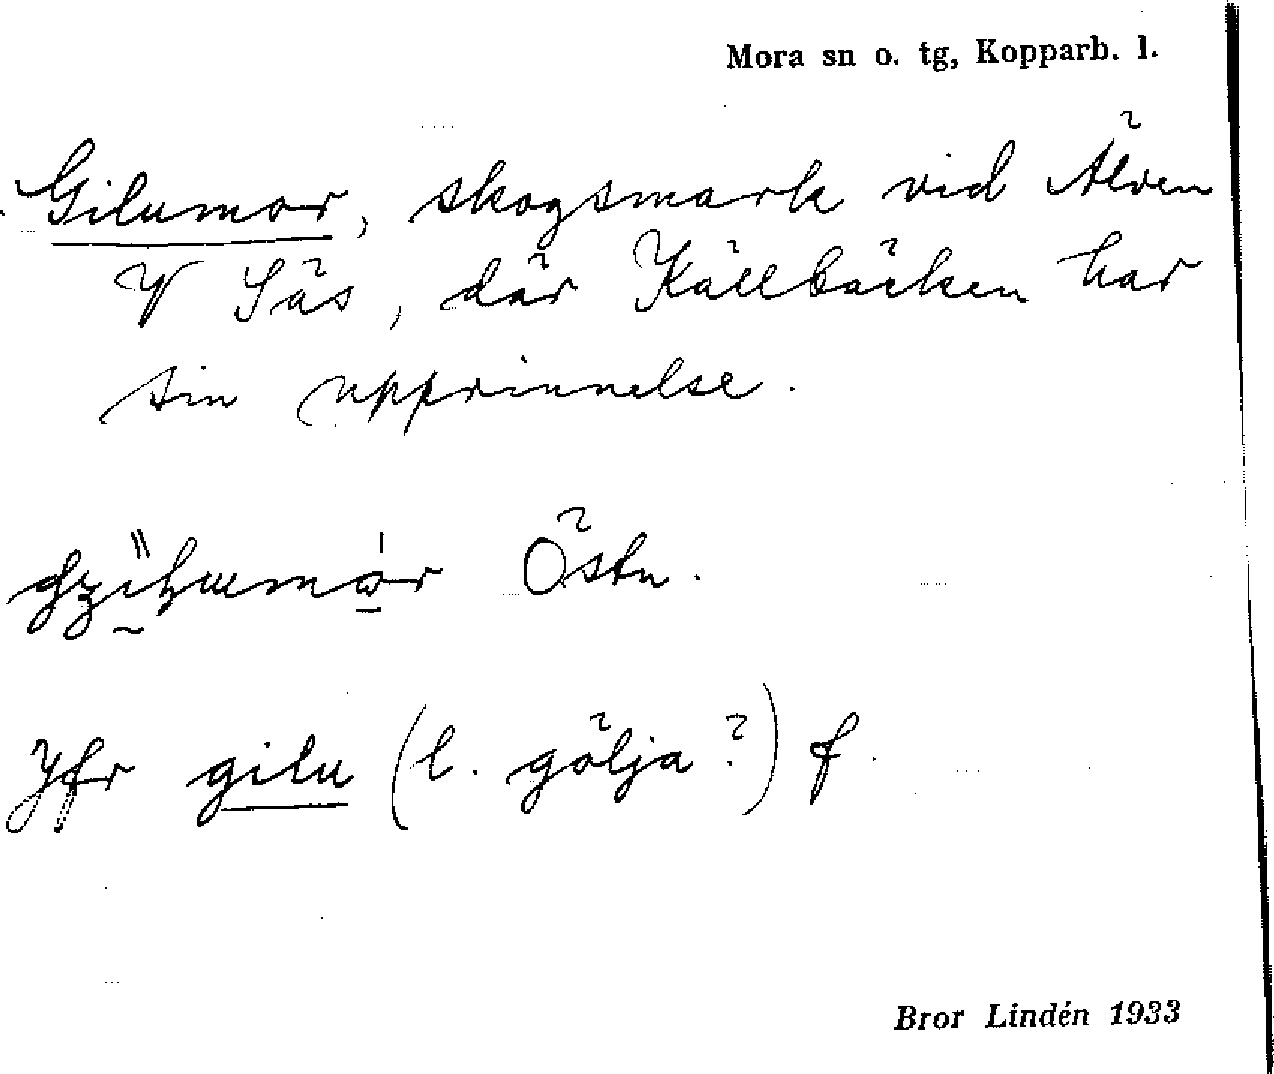 Mora sn o. tg, Kopparb. l.
Gilumor, skogsmark vid Älven
V Säs, där Källbäcken har
sin upprinnelse.
Östn.
Jfr gilu (l. gölja?) f.
Bror Lindén 1933